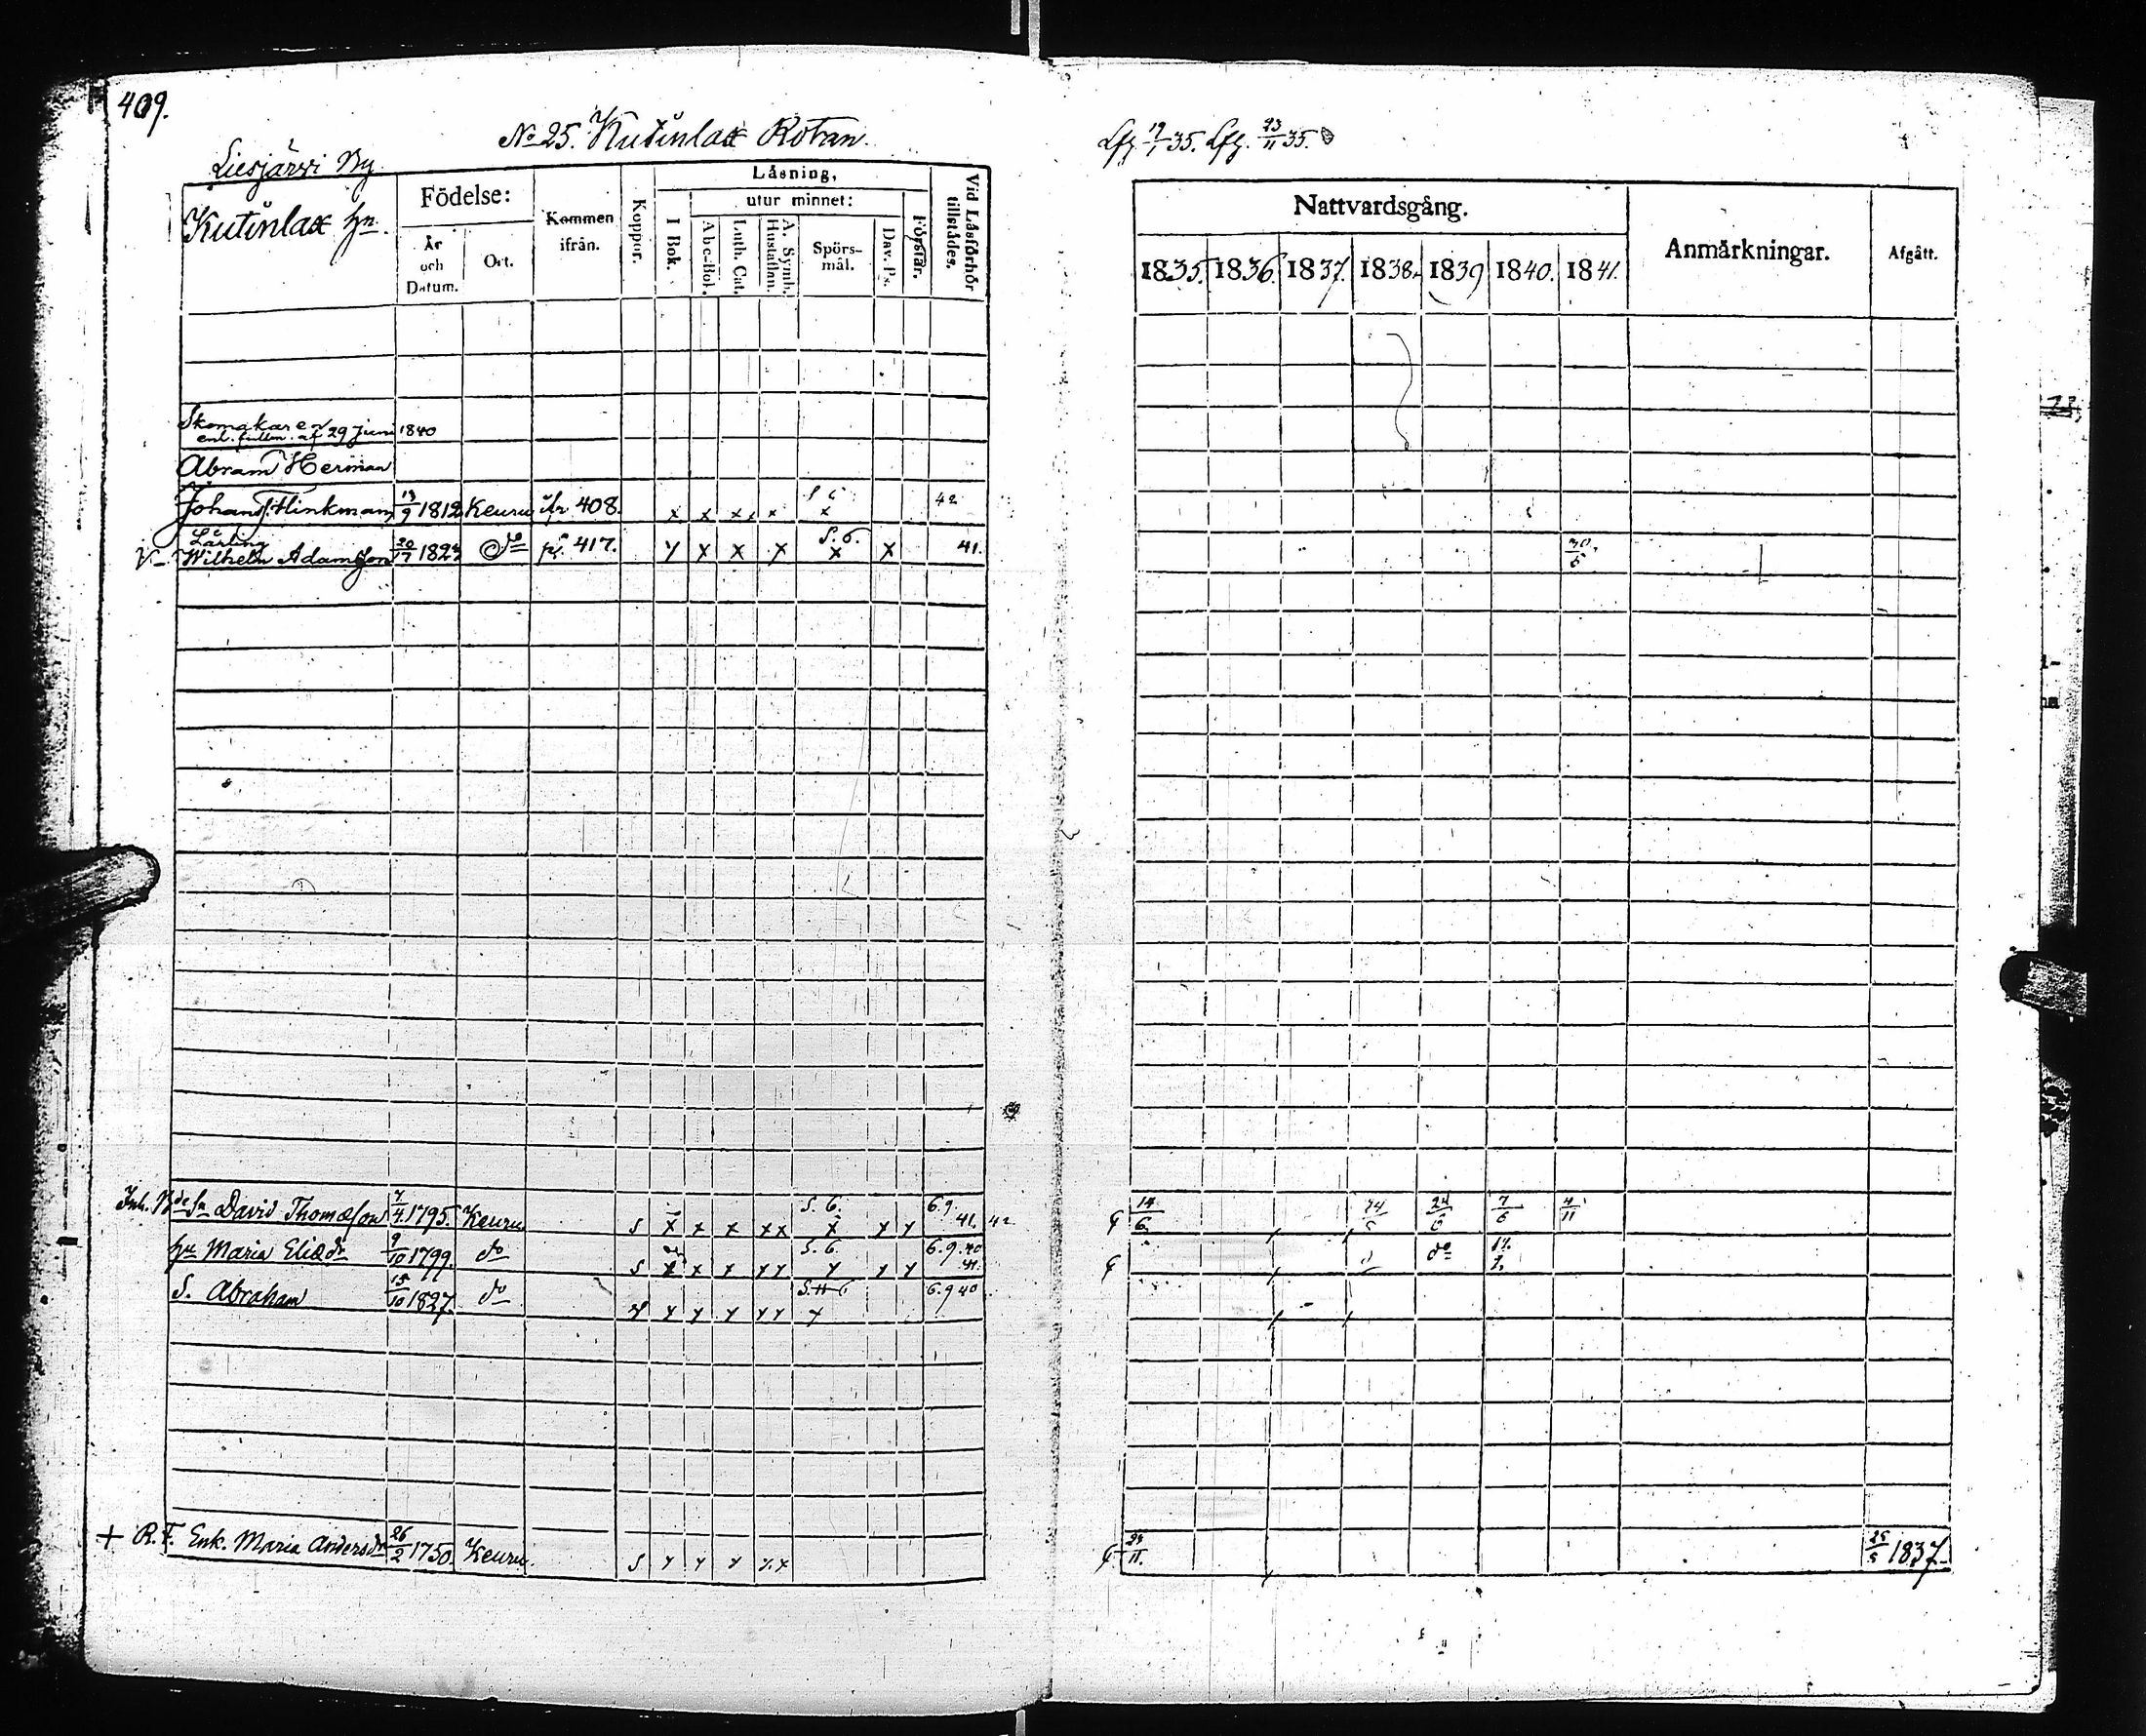 409.
No 25. Kutinlax Rotan.
Liesjärvi By
Kutinlax hn.
Födelse:
År och Datum.
Ort.
Kommen ifrån.
Koppor.
Låsning,
I Bok.
utur minnet:
Abc-Bok.
Luth. Cat.
A. Symb. Hustaflan.
Spörs-mål.
Dav. Ps.
Förstår.
Vid Låsförhör tillstådes.
Skomakaren
enl. fullm. af 29 Juni 1840
Abram Herman
Johans. Hinkman 13/9 1812 Keuru ifr 408. x x x x x 42
Lärling S. 6.
V Wilhelm Adamsson 20/7 182 do 417. y x x x x x 41.
Inh. Bde Sn David Thomæson 7/4 1795. Keuru S x x x x x S. 6. x x y 6.9. 41. 42
hu Maria Eliædr 9/10 1799. do S x x y y y S. 6. y y y 6.9.40 41.
S. Abraham 15/10 1827. do y y y y y y 6.9 40
+ R. F. Enk. Maria Andersdr 26/2 1750. Keuru. S y y y x x
Lfg 19/1 35. Lfg. 23/11 35.
Nattvardsgång.
1835. 1836. 1837. 1838. 1839 1840. 1841.
Anmärkningar.
Afgått.
30/5
14/6 24/6 7/6 4/11
do
24/11. 25/5 1837